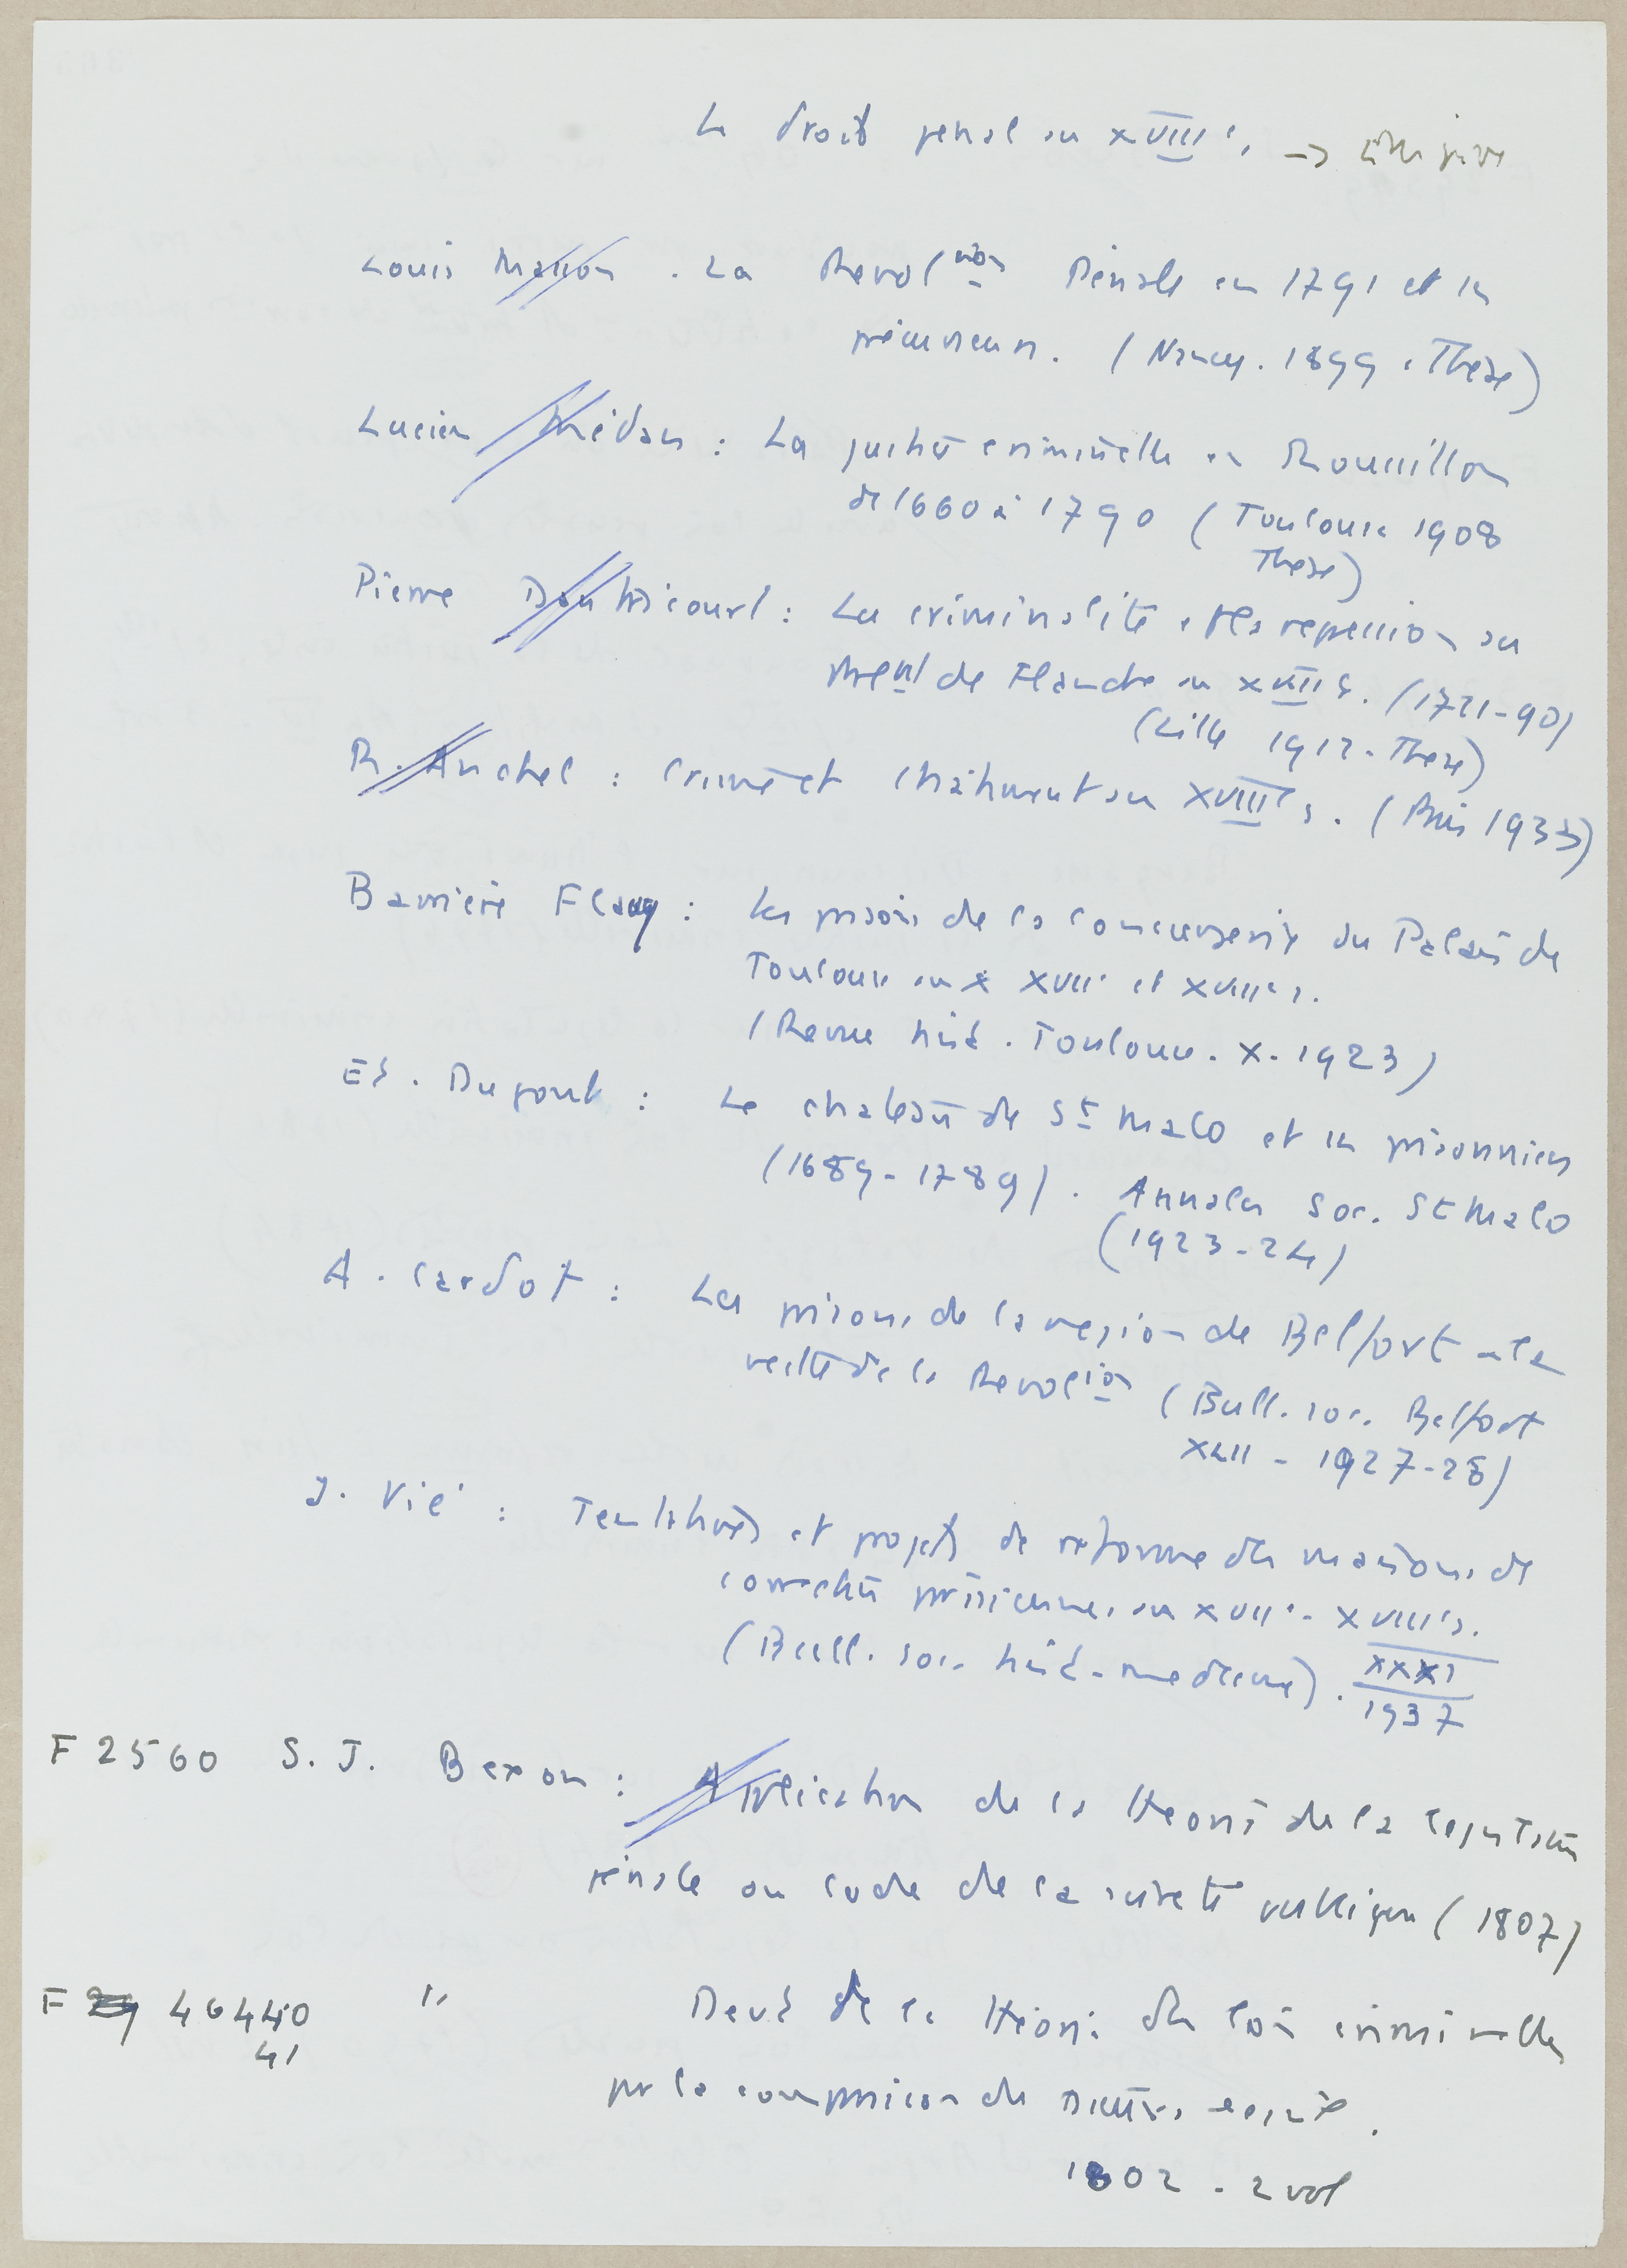 Le droit pénal au XVIIIe s. →
Louis Masson . La Revolution Pénale en 1791 et ses
précurseurs. (Nancy. 1899. Thèse)
Lucien Médan : La justice criminelle en Roussillon
de 1660 à 1790 (Toulouse 1908
Thèse)
Pierre Dautricourt : La criminalité et la repression au
Plent de Flandre au XVIIIe s. (1721-90)
(Lille 1912 - Thèse)
R. Anchel : Crime et châtiment au XVIIIe s. (Paris 1933)
Barrière Flavy : Les prisons de la Conciergerie du Palais de
Toulouse aux XVIIe et XVIIIe s.
(Revue hist. Toulouse. X. 1923)
Et. Dupont : Le chateau de St Malo et ses prisonniers
(1689-1789). Annales Soc. St Malo
(1923-24)
A. Cardot : Les prisons de la region de Belfort à la
veille de la Revolion (Bull. soc. Belfort
XLII - 1927-28)
J. Vié : Tentatives et projets de reforme des maisons de
correction parisiennes au XVIIe - XVIIIe s.
(Bull. soc. hist. medecine). XXXI
1937
F 2560 S. J. Bexon : Application de la théorie de la législation
pénale ou code de la sureté publique (1807)
F 46440 " Devt de la théorie des lois criminelles
par la comparaison de
41
1802 - 2 vol